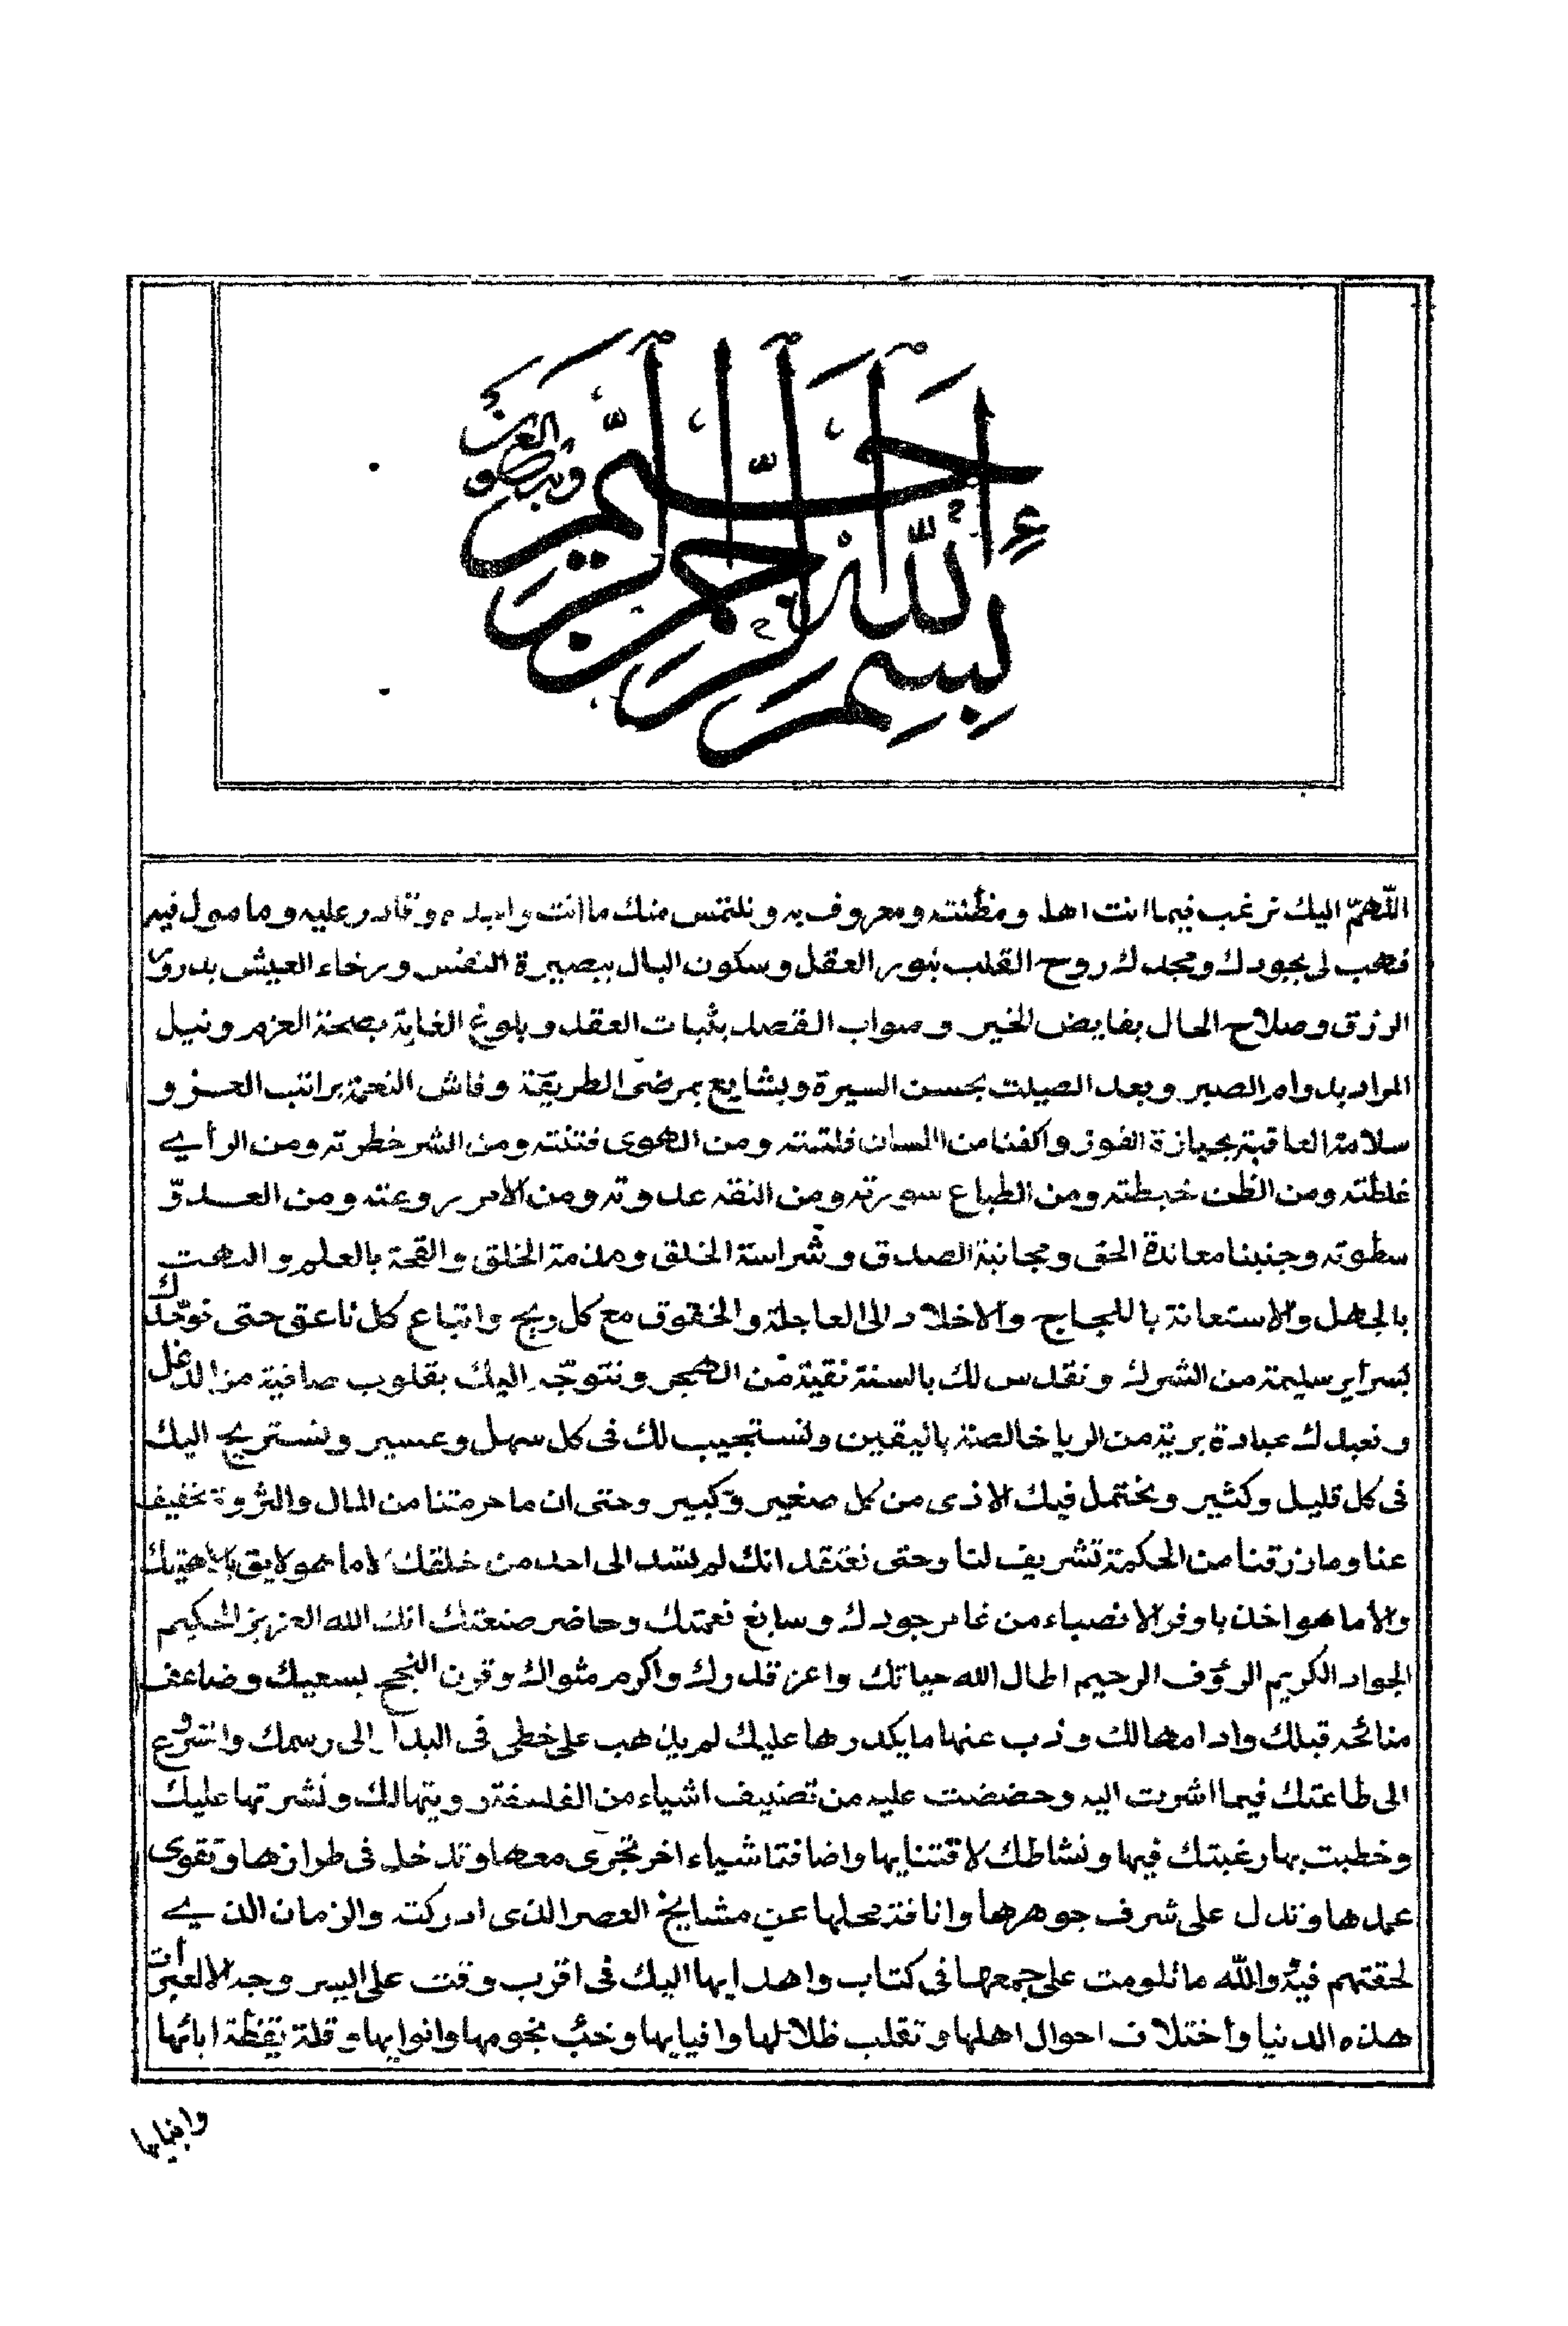 بسم الله الرحمن الرحيم
اللّٰهمّ اليك نرغب فيما انت اهله ومظنته ومعروف به ونلتمس منك ما انت واجده وقادر عليه ومامول فيه
فهب لى بجودك ومجدك روح القلب بنور العقل وسكون البال ببصيرة النفس ورخاء العيش بدرور
الرزق وصلاح الحال بفايض الخير وصواب القصد بثبات العقد وبلوغ الغاية بصحة العزم ونيل
المراد بدوام الصبر وبعد الصيت بحسن السيرة وبشايع بمرضى الطريقة وفاش النعمة براتب العز و
سلامة العاقبة بحيازة الفوز واكفنا من اللسان فلتته ومن الهوى فتنته ومن الشر خطرته ومن الرأي
غلطته ومن الظن خبطته ومن الطباع سورته ومن النقه عدوته ومن الامر روعته ومن العدوّ
سطوته وجنبنا معاندة الحق ومجانبة الصدق وشراسة الخلق ومذمة الخلق والقحة بالعلم والبهت
بالجهل والاستعانة باللجاج والاخلاد الى العاجلة والخفوق مع كل ريح واتباع كل ناعق حتى نوحّدك
بسراير سليمة من الشرك ونقدس لك بالسنة نقية من الهجر ونتوجّه اليك بقلوب صافية من الدغل
ونعبدك عبادة برية من الريا خالصة باليقين ونستجيب لك فى كل سهل وعسير ونستريح اليك
فى كل قليل وكثير ونحتمل فيك الاذى من كل صغير وكبير وحتى ان ما حرمتنا من المال والثروة تخفيف
عنا وما رزقتنا من الحكمة تشريف لنا وحتى نعتقد انك لم تسد الى احد من خلقك الا ما هو لايق بالاهيتك
والا ما هو اخذ باوفر الانصباء من غامر جودك وسابغ نعمتك وحاضر صنعتك انك الله العزيز الحكيم
الجواد الكريم الرؤف الرحيم اطال الله حياتك واعز قدرك واكرم مثواك وقرن النجح بسعيك وضاعف
منائحه قبلك وادامها لك وذب عنها ما يكدرها عليك لم يذهب على خطى فى البدا الى رسمك والتسرع
الى طاعتك فيما اشرت اليه وحضضت عليه من تصنيف اشياء من الفلسفة رويتها لك ونشرتها عليك
وخطبت بها رغبتك فيها ونشاطك لاقتنايها واضافة اشياء اخر تجرى معها وتدخل فى طرازها وتقوى
عمدها وتدل على شرف جوهرها وانافة محلها عن مشايخ العصر الذى ادركته والزمان الذي
لحقتهم فيه والله ما تلومت على جمعها فى كتاب واهدايها اليك فى اقرب وقت على ايسر وجه الا لعبرات
هذه الدنيا واختلاف احوال اهلها وتقلب ظلالها وافيايها وخبّ نجومها وانوايها وقلة يقظة ابائها
وابنايها